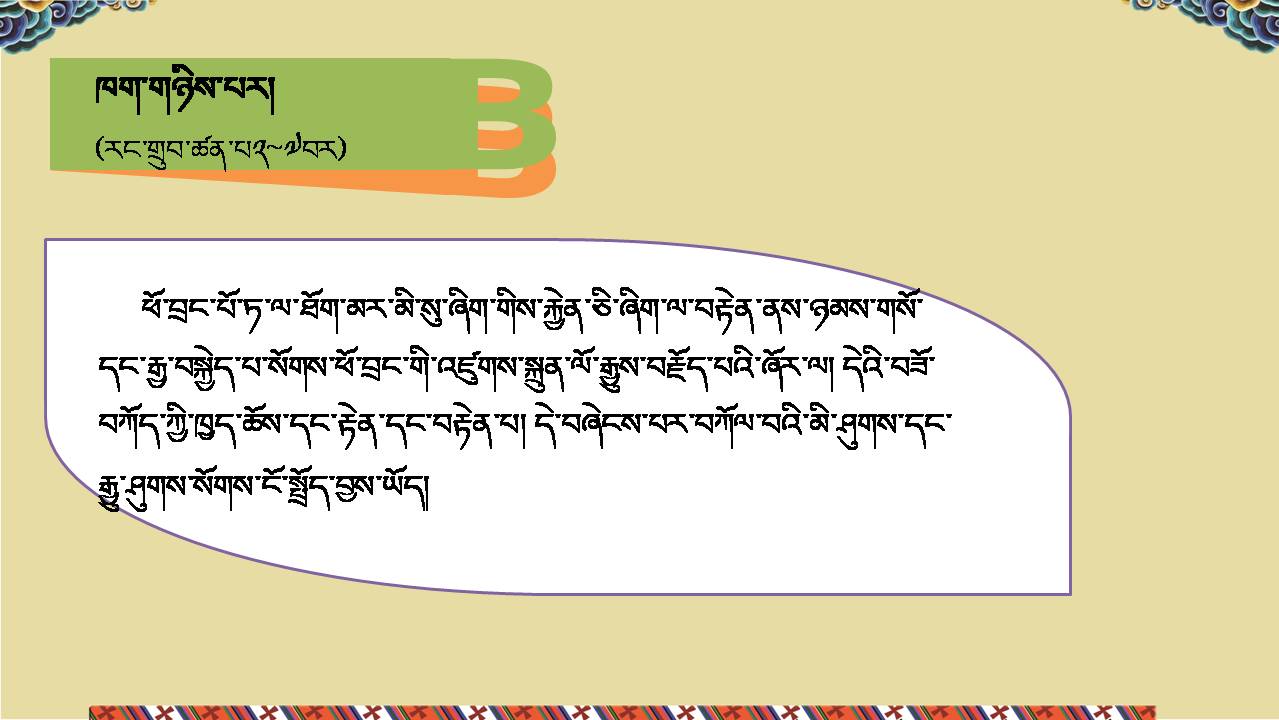 ཁག་གཉིས་པར།
(རང་གྲུབ་ཚན་པ༢~༧བར)
B
ཕོ་བྲང་པོ་ཏ་ལ་ཐོག་མར་མི་སུ་ཞིག་གིས་རྐྱེན་ཅི་ཞིག་ལ་བརྟེན་ནས་ཉམས་གསོ་
དང་རྒྱ་བསྐྱེད་པ་སོགས་ཕོ་བྲང་གི་འཛུགས་སྐྲུན་ལོ་རྒྱུས་བརྗོད་པའི་ཞོར་ལ། དེའི་བཟོ་
བཀོད་ཀྱི་ཁྱད་ཆོས་དང་རྟེན་དང་བརྟེན་པ། དེ་བཞེངས་པར་བཀོལ་བའི་མི་ཤུགས་དང་
རྒྱུ་ཤུགས་སོགས་ངོ་སྤྲོད་བྱས་ཡོད།